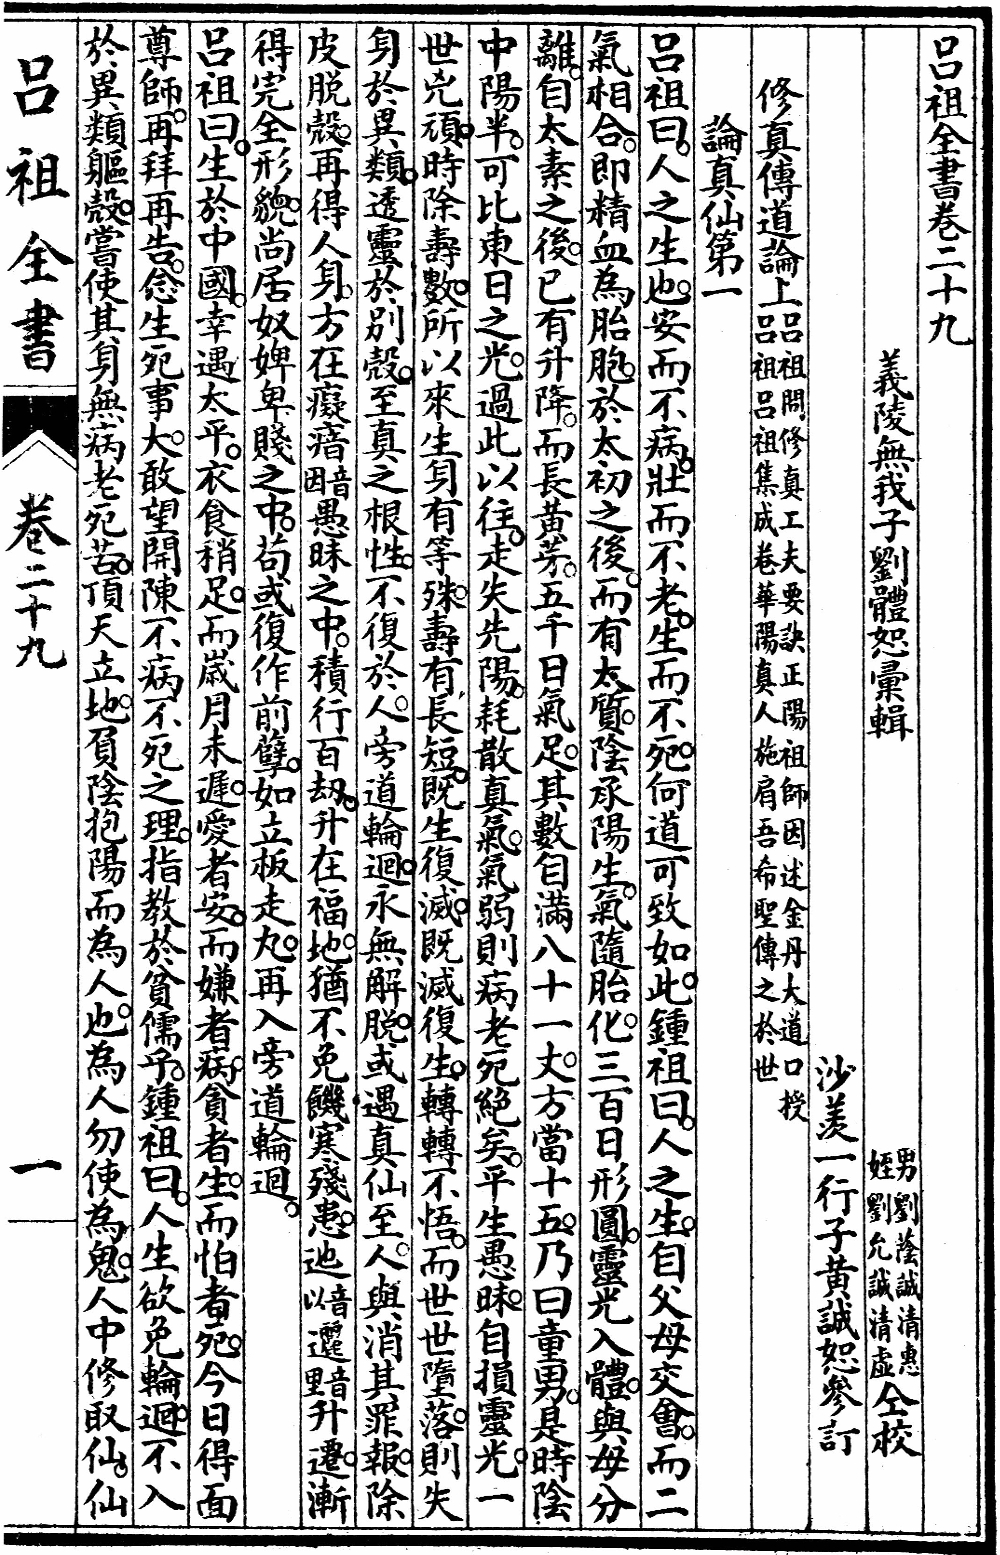 呂祖全書卷二十九
義陵無我子劉體恕彙輯
男劉蔭誠清惠
姪劉允誠清虛
仝校
沙羡一行子黃誠恕參訂
修真傳道論上
呂祖問修真工夫要訣正陽祖師因述金丹大道口授
呂祖呂祖集成卷華陽真人施肩吾希聖傳之於世
論真仙第一
呂祖曰。人之生也。安而不病。壯而不老。生而不死。何道可致如此。鍾祖曰。人之生。自父母交會。而二
氣相合。即精血為胎胞。於太初之後。而有太質。陰承陽生。氣隨胎化。三百日形圓。靈光入體。與母分
離。自太素之後。已有升降。而長黃芽。五千日氣足。其數自滿八十一丈。方當十五。乃曰童男。是時陰
中陽半。可比東日之光。過此以往。走失先陽。耗散真氣。氣弱則病老死絕矣。平生愚昧。自損靈光。一
世兇頑。時除壽數。所以來生身有等殊。壽有長短。既生復滅。既滅復生。轉轉不悟。而世世墮落。則失
身於異類。透靈於別殼。至真之根性。不復於人。旁道輪迴。永無解脫。或遇真仙至人。與消其罪報。除
皮脫殼。再得人身。方在癡瘖音因愚昧之中。積行百劫。升在福地。猶不免饑寒殘患。迆音以邐音里升遷。漸
得完全形貌。尚居奴婢卑賤之中。苟或復作前孽。如立板走丸。再入旁道輪迴。
呂祖曰。生於中國。幸遇太平。衣食稍足。而歲月未遲。愛者安。而嫌者病。貪者生。而怕者死。今日得面
尊師。再拜再告。念生死事大。敢望開陳不病不死之理。指教於貧儒乎。鍾祖曰。人生欲免輪迴。不入
於異類軀殼。嘗使其身無病老死苦。頂天立地。負陰抱陽而為人也。為人勿使為鬼。人中修取仙。仙
呂祖全書
卷二十九
一